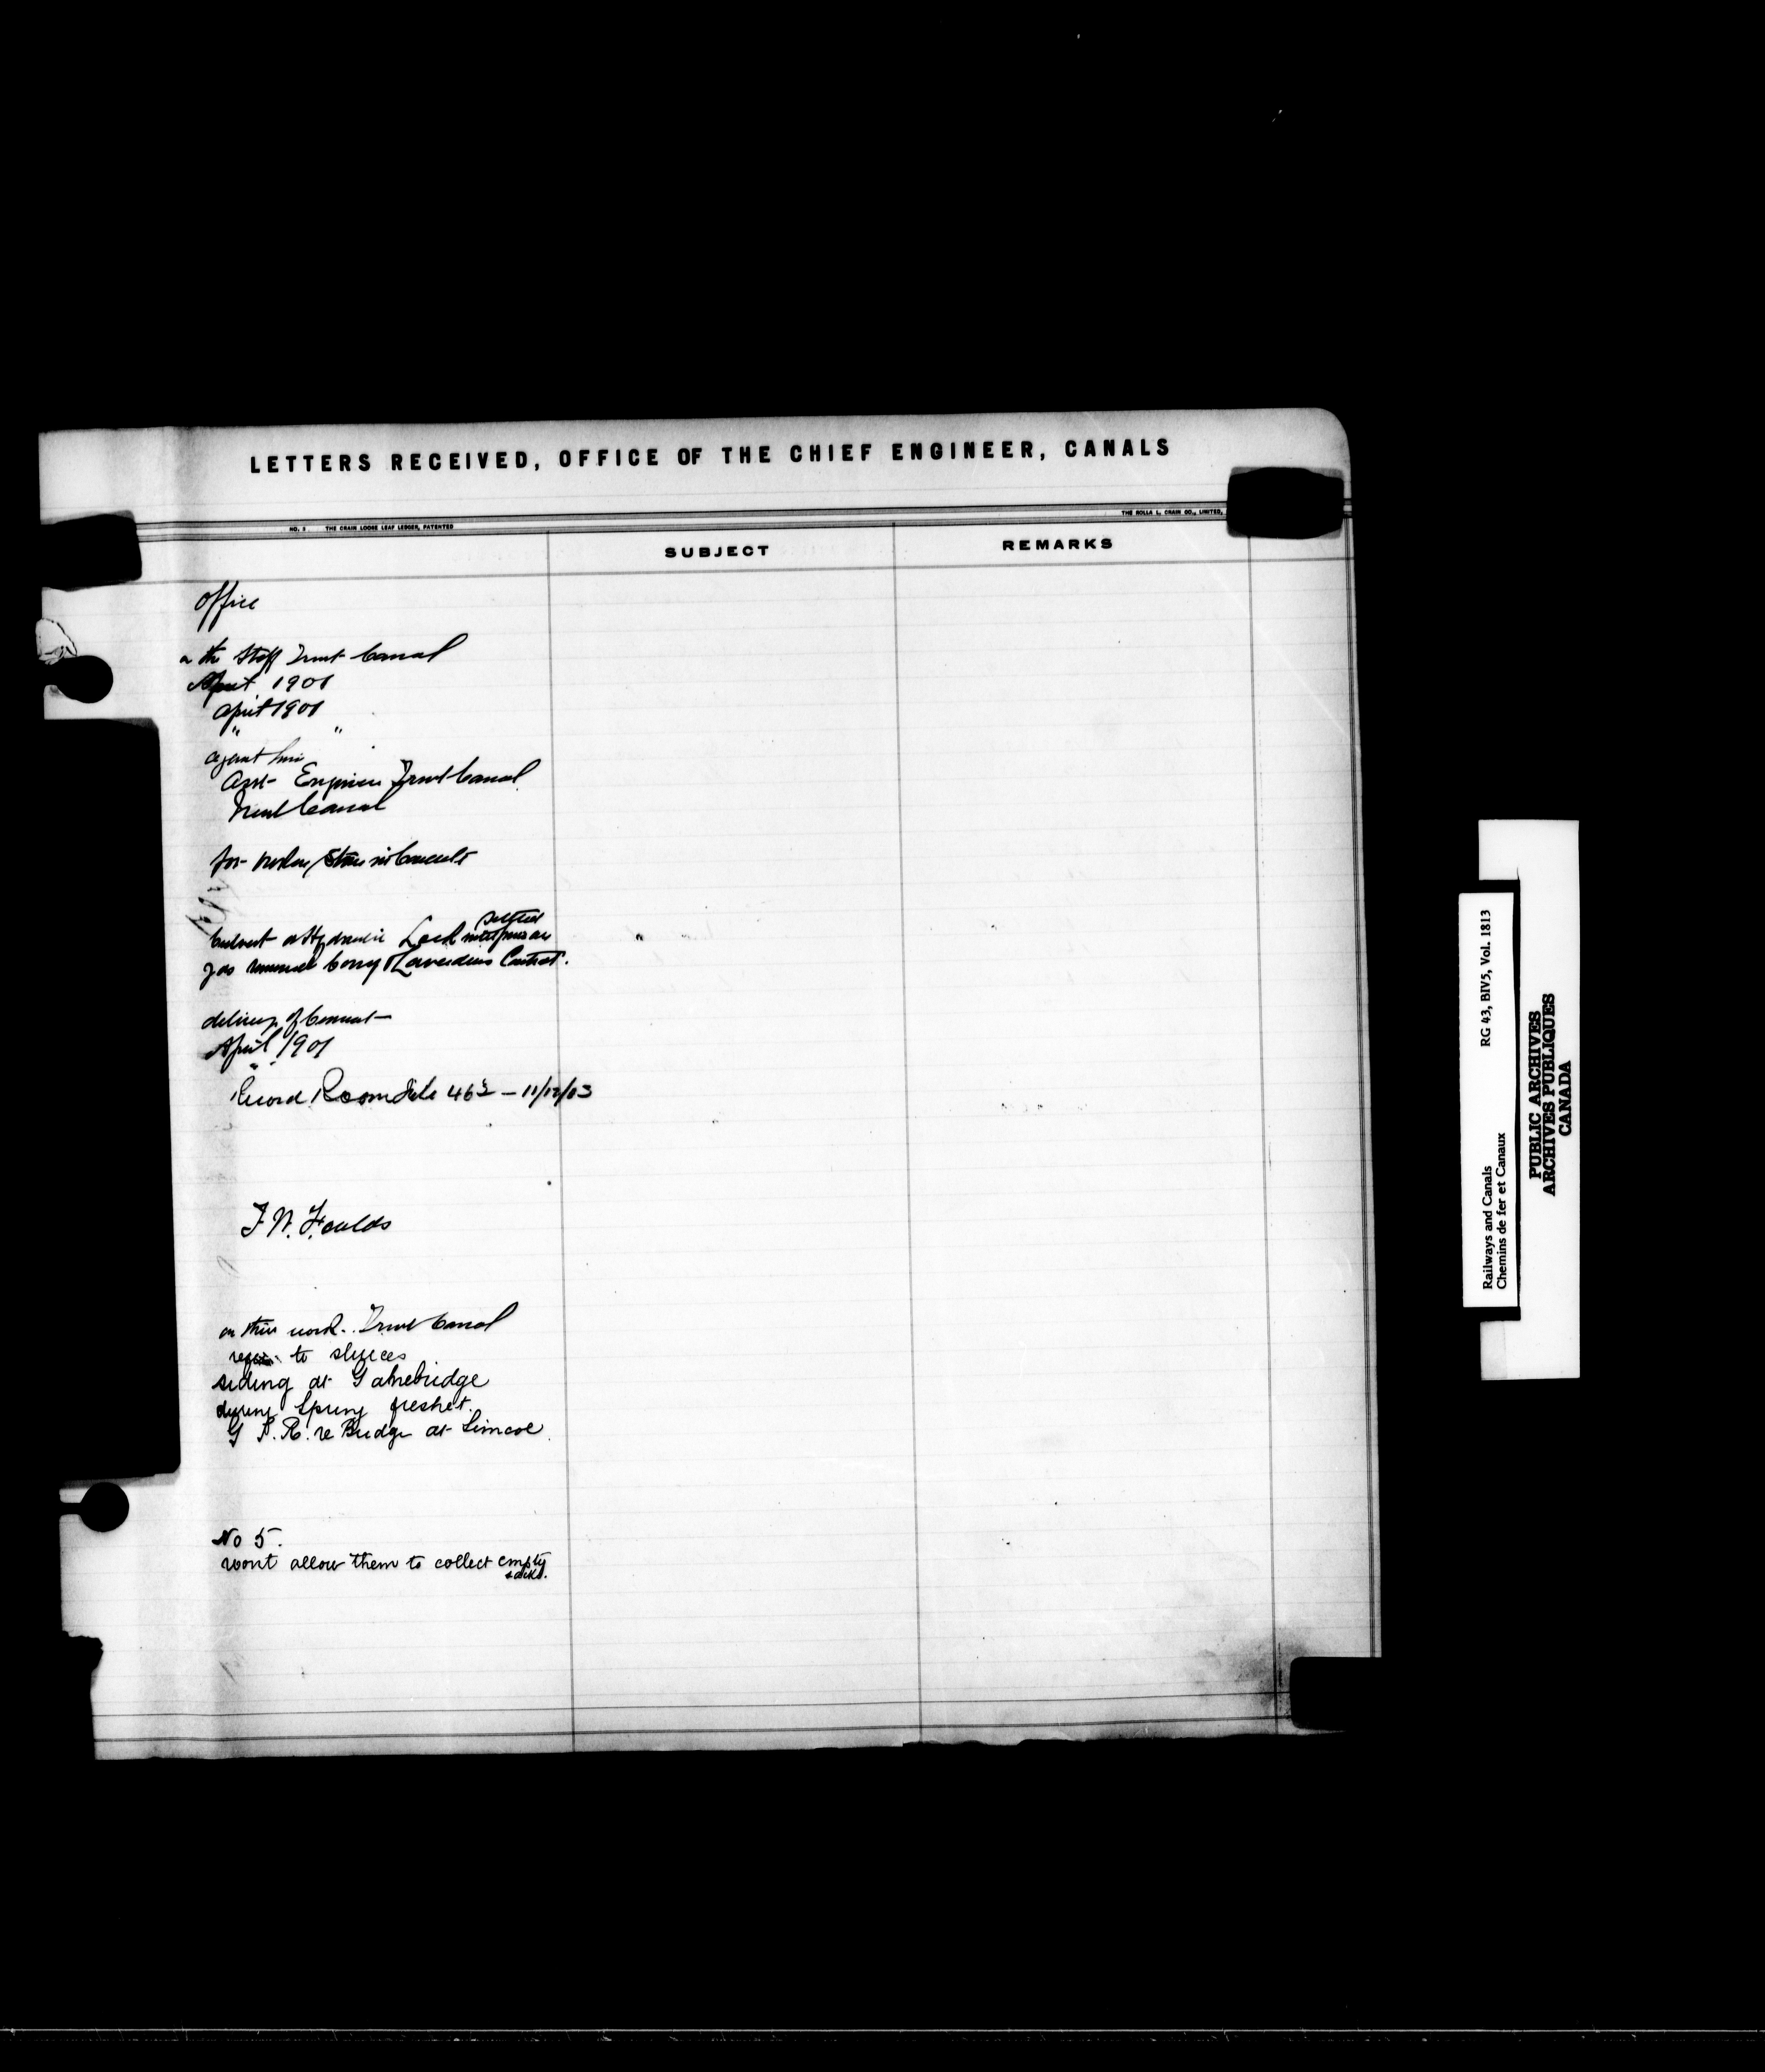 LETTERS RECEIVED, OFFICE OF THE CHIEF ENGINEER, CANALS
NO. 3 THE CRAIN LOOSE LEAF LEDGER, PATENTED
THE ROLLA L. CRAIN CO., LIMITED,
SUBJECT
REMARKS
Office
the Staff Trent Canal
April 1901
April 1901
" "
against him
Asst- Engineer Trent Canal
Trent Canal
for
Culvert at Hydraulic Lock
removal Corry & Laverdure Contract.
delivery of Cement
April 1901
" "
Record Room File 46 — 11/12/03
F. W. Foulds
on this work. Trent Canal
to sluices
siding at Gamebridge
during Spring freshet.
G T. R. re Bridge at Simcoe
No 5.
wont allow them to collect empty
sacks.
RG 43, BIV5, Vol. 1813
Railways and Canals
Chemins de fer et Canaux
PUBLIC ARCHIVES
ARCHIVES PUBLIQUES
CANADA